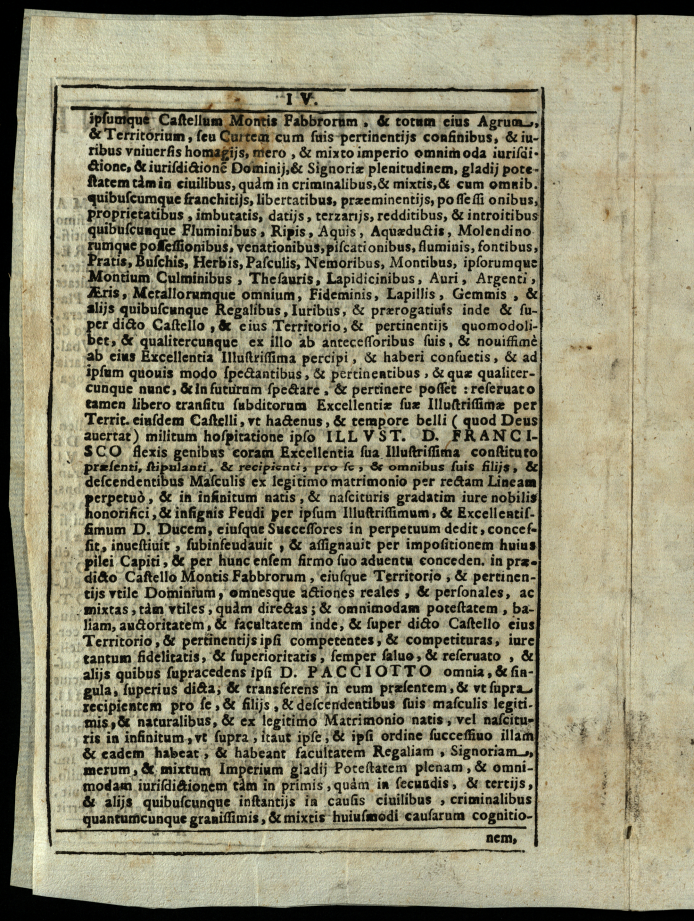 I V.
ipsumque Castellum Montis Fabbrorum, & totum eius Agrum,
& Territorium, seu Curtem cum suis pertinentijs confinibus, & iu-
ribus vniuersis homagijs, mero, & mixto imperio omnimoda iurisdi-
ctione, & iurisdictionē Dominij, & Signoriæ plenitudinem, gladij pote-
statem tàm in ciuilibus, quàm in criminalibus, & mixtis, & cum omnib.
quibuscumque franchitijs, libertatibus, præeminentijs, possessi onibus,
proprietatibus, imbutatis, datijs, terzarijs, redditibus, & introitibus
quibuscunque Fluminibus, Ripis, Aquis, Aquæductis, Molendino-
rumque possessionibus, venationibus, piscationibus, fluminis, fontibus,
Pratis, Buschis, Herbis, Pasculis, Nemoribus, Montibus, ipsorumque
Montium Culminibus, Thesauris, Lapidicinibus, Auri, Argenti,
Æris, Metallorumque omnium, Fideminis, Lapillis, Gemmis, &
alijs quibuscunque Regalibus, Iuribus, & prærogatiuis inde & su-
per dicto Castello, & eius Territorio, & pertinentijs quomodoli-
bet, & qualitercunque ex illo ab antecessoribus suis, & nouissimè
ab eius Excellentia Illustrissima percipi, & haberi consuetis, & ad
ipsum quouis modo spectantibus, & pertinentibus, & quæ qualiter-
cunque nunc, & In futurum spectare, & pertinere posset: reseruato
tamen libero transitu subditorum Excellentiæ suæ Illustrissimæ per
Territ. eiusdem Castelli, vt hactenus, & tempore belli (quod Deus
auertat) militum hospitatione ipso ILLVST. D. FRANCI-
SCO flexis genibus coram Excellentia sua Illustrissima constituto
præsenti, stipulanti, & recipienti, pro se, & omnibus suis filijs, &
descendentibus Masculis ex legitimo matrimonio per rectam Lineam
perpetuò, & in infinitum natis, & nascituris gradatim iure nobilis
honorifici, & insignis Feudi per ipsum Illustrissimum, & Excellentis-
simum D. Ducem, eiusque Successores in perpetuum dedit, conces-
sit, inuestiuit, subinfeudauit, & assignauit per impositionem huius
pilei Capiti, & per hunc ensem firmo suo aduentu conceden. in præ-
dicto Castello Montis Fabbrorum, eiusque Territorio, & pertinen-
tijs vtile Dominium, omnesque actiones reales, & personales, ac
mixtas, tàm vtiles, quàm directas; & omnimodam potestatem, ba-
liam, auctoritatem, & facultatem inde, & super dicto Castello eius
Territorio, & pertinentijs ipsi competentes, & competituras, iure
tantum fidelitatis, & superioritatis, semper saluo, & reseruato, &
alijs quibus supracedens ipsi D. PACCIOTTO omnia, & sin-
gula, superius dicta; & transferens in eum præsentem, & vt supra
recipientem pro se, & filijs, & descendentibus suis masculis legiti-
mis, & naturalibus, & ex legitimo Matrimonio natis, vel nascitu-
ris in infinitum, vt supra, itaut ipse, & ipsi ordine successiuo illam
& eadem habeat, & habeant facultatem Regaliam, Signoriam,
merum, & mixtum Imperium gladij Potestatem plenam, & omni-
modam iurisdictionem tàm in primis, quàm in secundis, & tertijs,
& alijs quibuscunque instantijs in causis ciuilibus, criminalibus
quantumcunque grauissimis, & mixtis huiusmodi causarum cognitio-
nem,